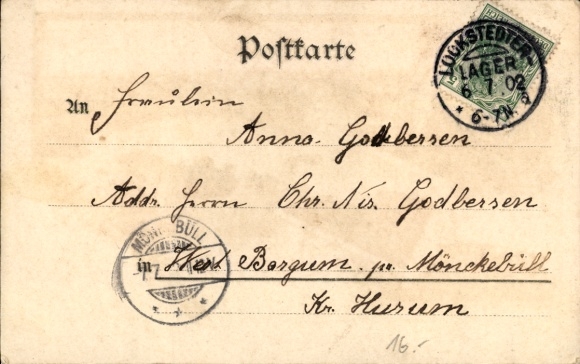 Postkarte
LOCKSTEDTER
LAGER
6. 7. 02
* 6-7N.
An Fräulein
Anna Godbersen
Addr. Herrn Chr. Nis. Godbersen
MÖNKEBÜLL
in West Bargum pr. Mönckebüll
Kr. Husum
16.-